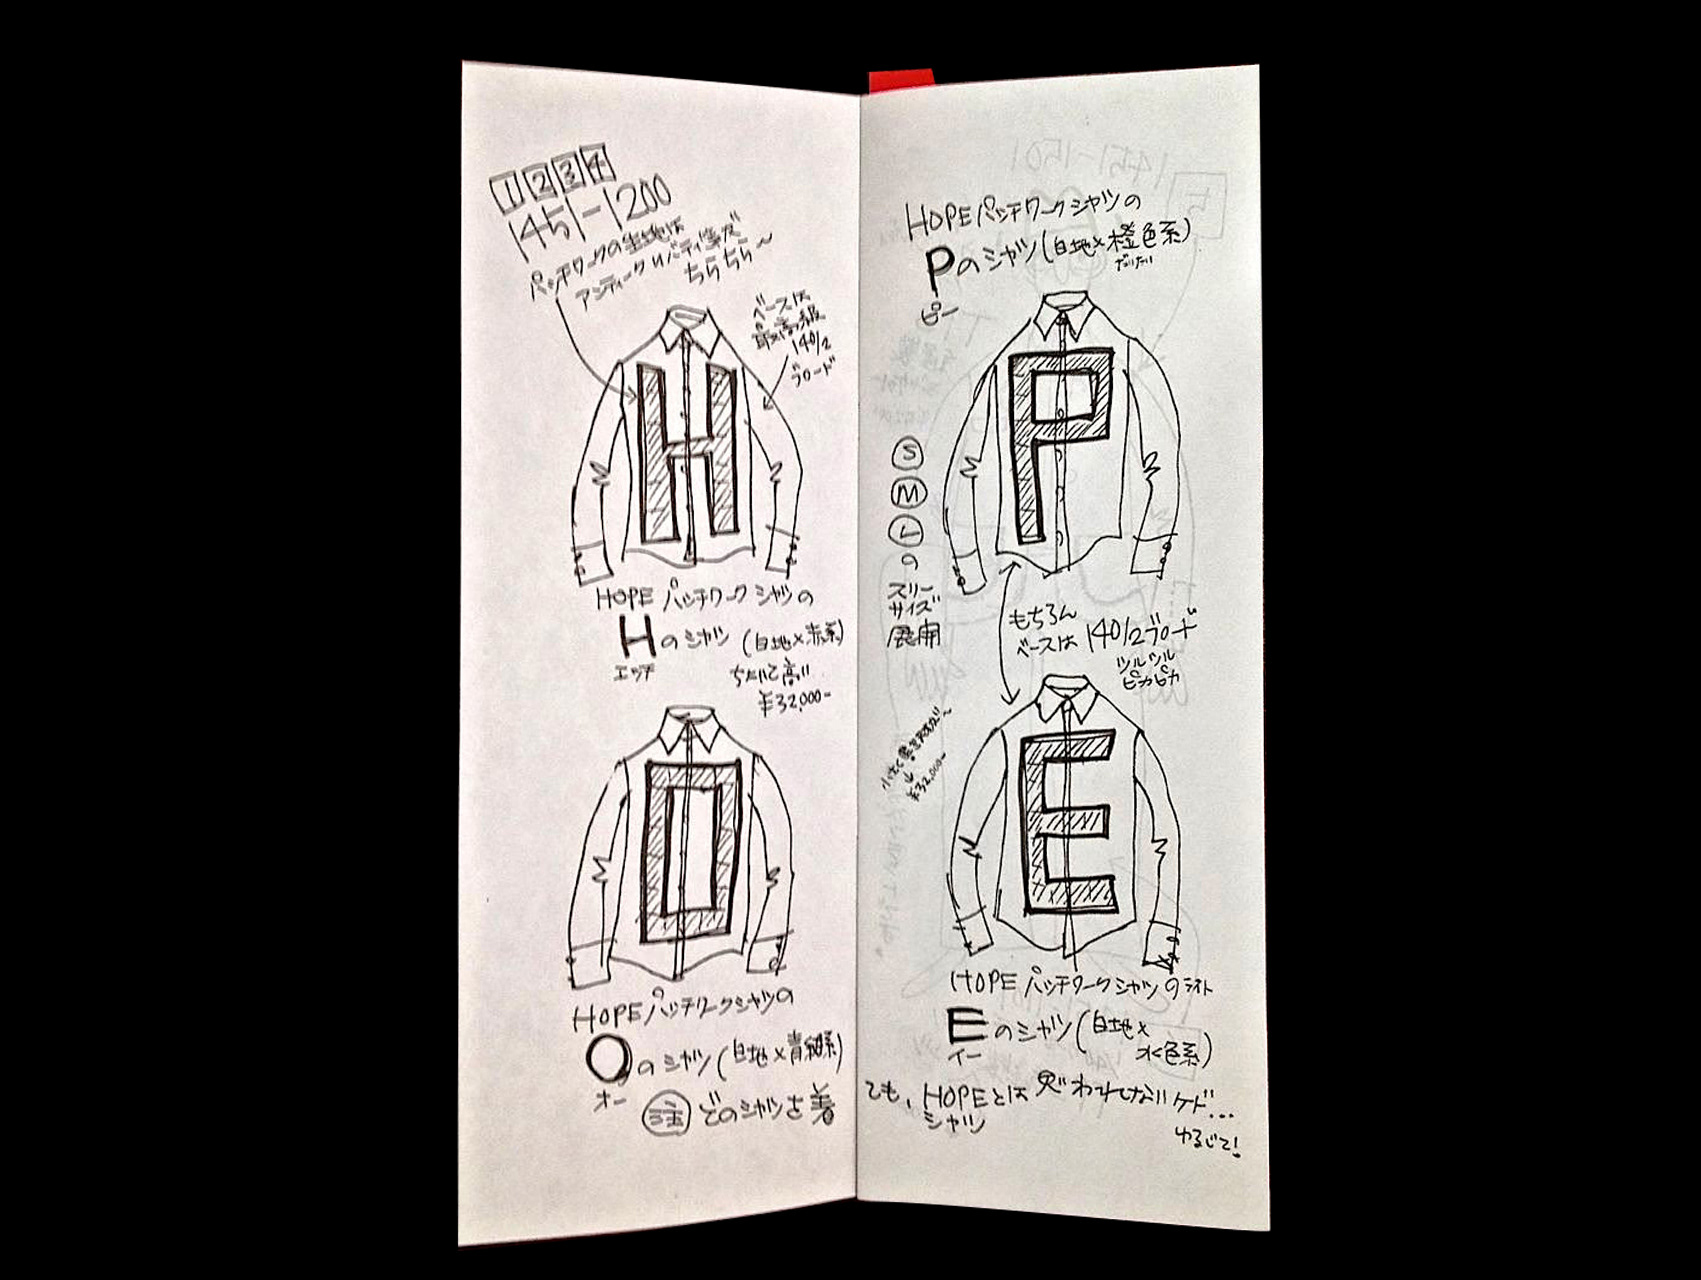 1 2 3 4
1451-1200
パッチワークの生地は
アンティークリバティ等友
ちらちら〜
ベースは
最高級
140/2
ブロード
H
HOPE パッチワーク シャツの
Hのシャツ (白地×赤系)
エッチ
高い
¥32,000-
O
HOPE パッチワークシャツの
Oのシャツ (白地×青緑系)
オー
注 どのシャツを着
HOPE パッチワークシャツの
Pのシャツ (白地×橙色系)
だいだい
ピー
P
S
M
L
の
スリー
サイズ
展開
もちろん
ベースは 140/2ブロード
ツルツル
ピカピカ
小さく
¥32,000-
E
HOPE パッチワークシャツのラスト
Eのシャツ (白地×
水色系)
イー
ても、HOPEとは思われないケド...
シャツ
ゆるして!